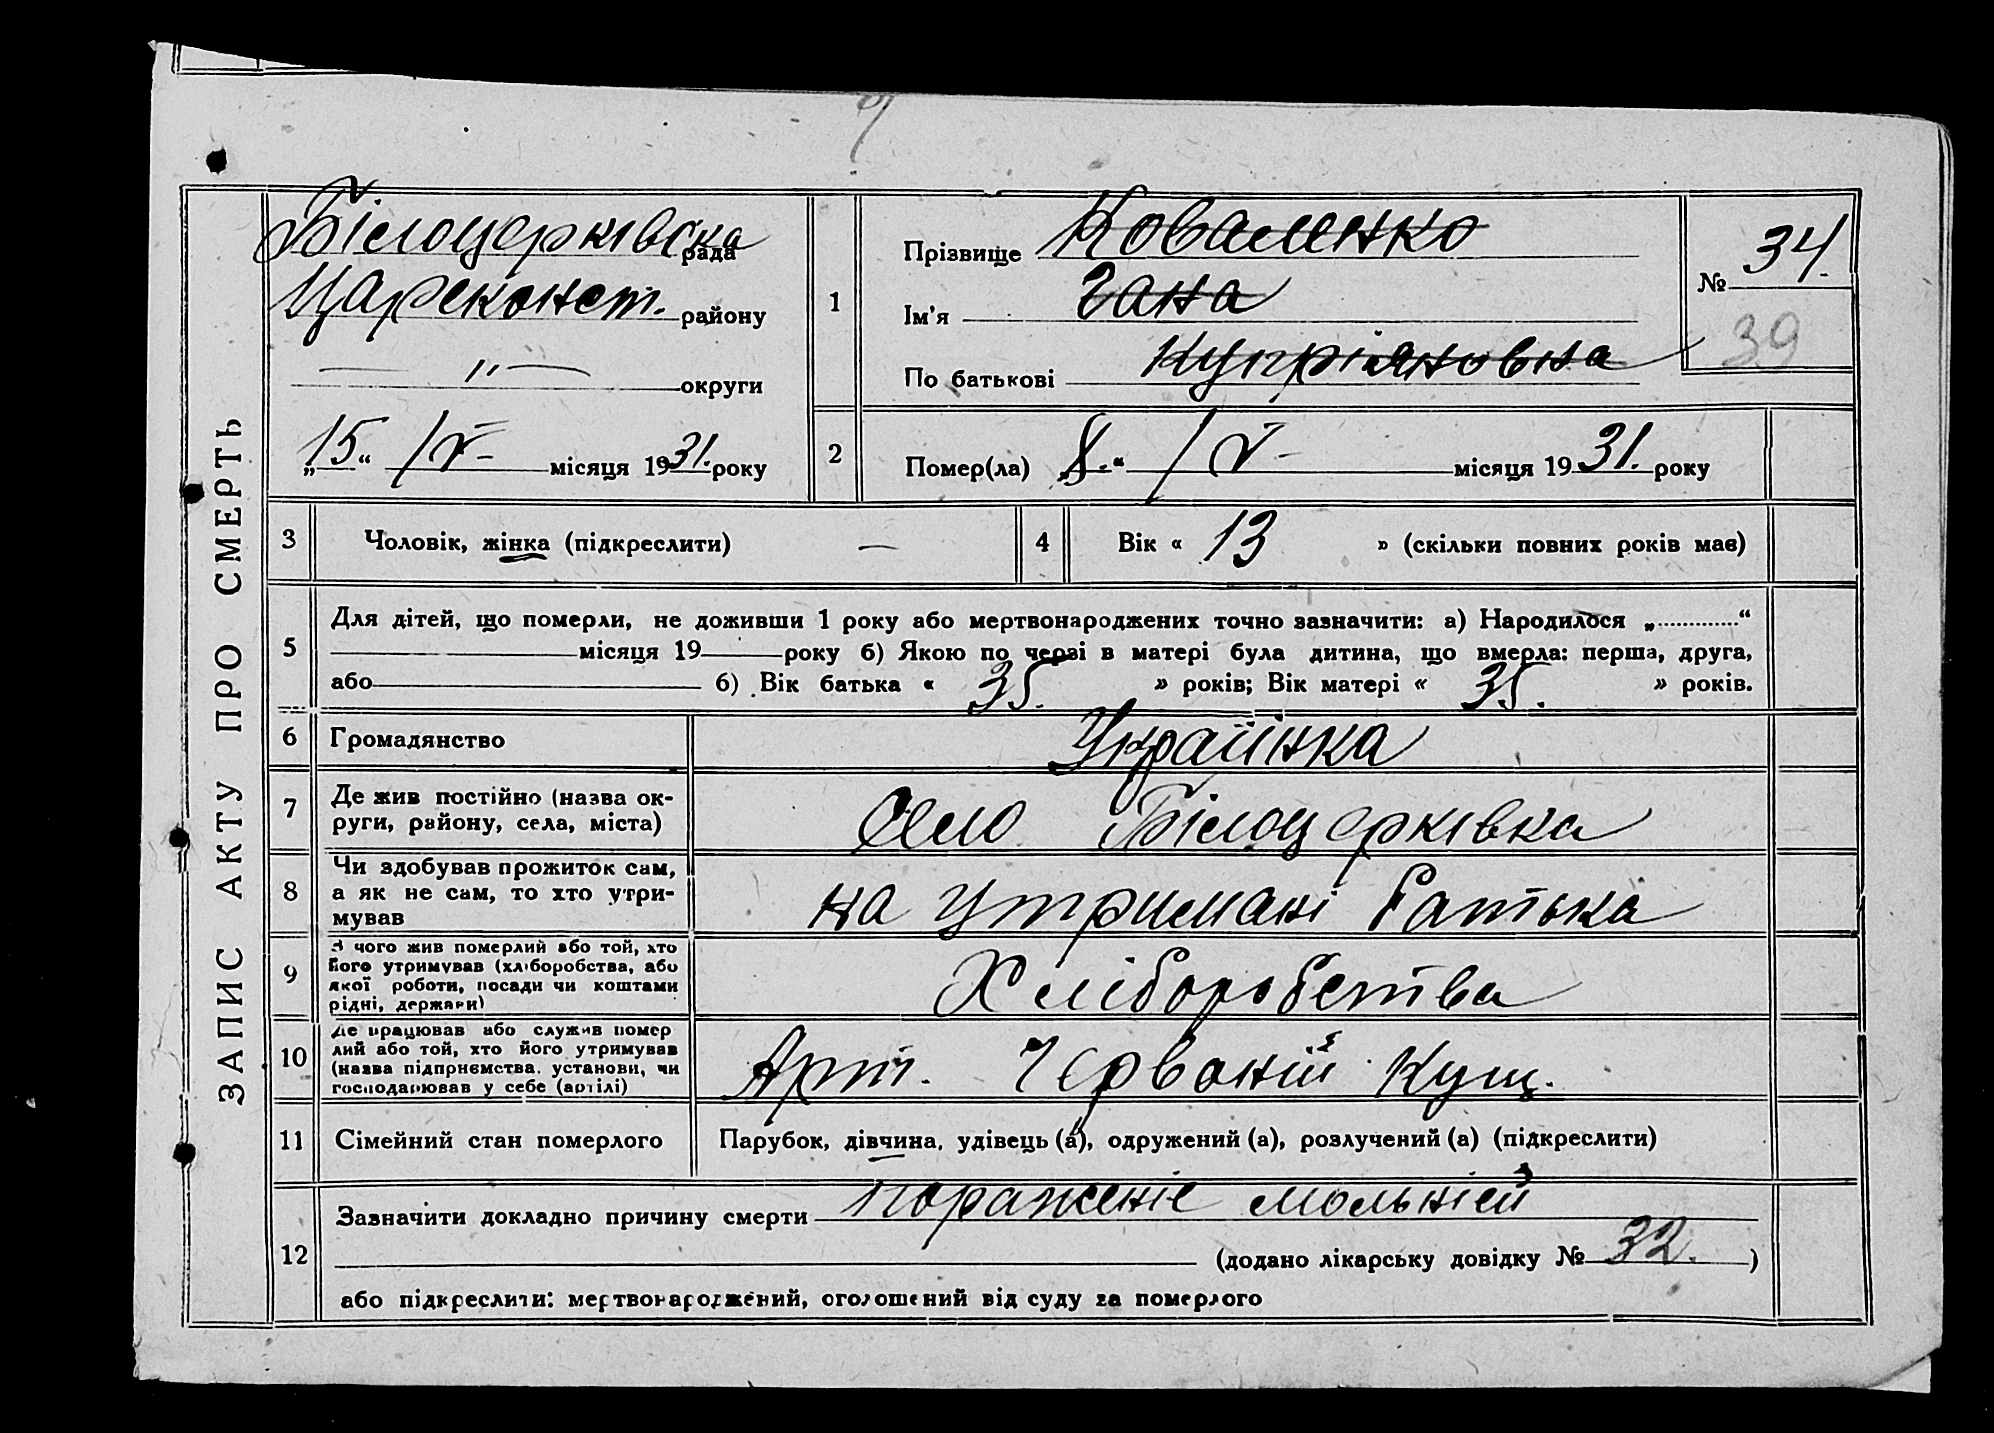 ЗАПИС АКТУ ПРО СМЕРТЬ
Білоцерківска рада
Цареконст. району
— " — округи
„15“ /V- місяця 1931. року
1
Прізвище Коваленко
Ім'я Гана
По батькові Купріяновна
№ 34.
39
2
Помер(ла) „8.“ /V- місяця 1931. року
3
Чоловік, жінка (підкреслити) —
4
Вік « 13 » (скільки повних років мав)
5
Для дітей, що померли, не доживши 1 року або мертвонароджених точно зазначити: а) Народилося „ “
місяця 19 року б) Якою по черзі в матері була дитина, що вмерла: перша, друга,
або б) Вік батька « 35. » років; Вік матері « 35. » років.
6
Громадянство
Українка
7
Де жив постійно (назва ок-
руги, району, села, міста)
Село Білоцерківка
8
Чи здобував прожиток сам,
а як не сам, то хто утри-
мував
на утримані батька
9
З чого жив померлий або той, хто
його утримував (хліборобства, або
якої роботи, посади чи коштами
рідні, держави)
Хліборобства
10
Де працював або служив помер
лий або той, хто його утримував
(назва підприємства, установи, чи
господарював у себе (артілі)
Арт. Червоній Кущ.
11
Сімейний стан померлого
Парубок, дівчина, удівець (а), одружений (а), розлучений (а) (підкреслити)
12
Зазначити докладно причину смерти пораженіе мольнієй
(додано лікарську довідку № 32. )
або підкреслити: мертвонароджений, оголошений від суду за померлого